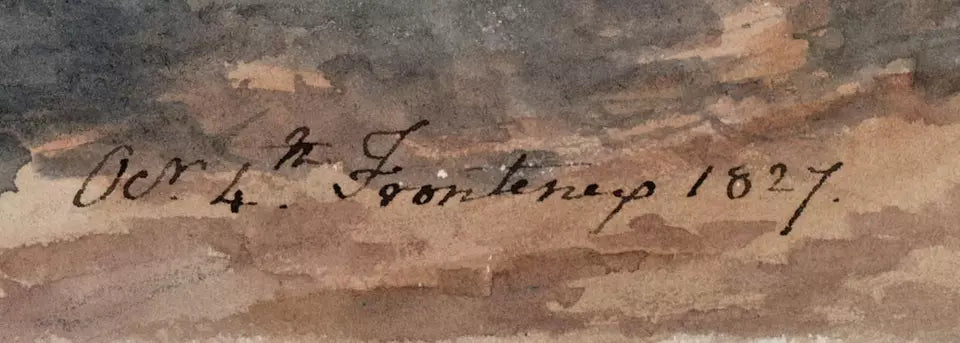 Ocr. 4th. Fronteney 1827.